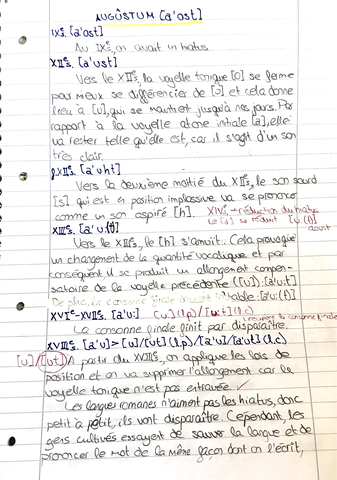 AUGŬSTUM [a'ost]
IXᵉs. [a'ost]
Au IXᵉs, on avait un hiatus
XIIᵉs. [a'ust]
Vers le XIIᵉs, la voyelle tonique [o] se ferme
pour mieux se différencier de [a] et cela donne
lieu à [u], qui se maintient jusqu'à nos jours. Par
rapport à la voyelle atone initiale [a], elle
va rester telle qu'elle est, car il s'agit d'un son
très clair.
XIIᵉs. [a'uht]
Vers la deuxième moitié du XIIᵉs, le son sourd
[s] qui est en position implosive va se prononcer
comme un son aspiré [h]. XIVᵉs → réduction du hiatus
XIIIᵉs. [a'u:(t)] se réduit [u:(t)]
août
Vers le XIIIᵉs, le [h] s'amuït. Cela provoque
un changement de la quantité vocalique et par
conséquent il se produit un allongement compen-
satoire de la voyelle précédente ([u]): [a'u:t]
De plus, la consonne finale devient instable: [a'u:(t)]
XVIᵉ-XVIIᵉs. [a'u:] [u:] (l.p) / [u:t] (l.c)
récupère la consonne finale
La consonne finale finit par disparaître.
XVIIIᵉs. [a'u] > [u]/[ut] (l.p) / [a'u]/[a'ut] (l.c)
[u]/[ut] A partir du XVIIIᵉs, on applique les lois de
position et on va supprimer l'allongement car la
voyelle tonique n'est pas entravée.
Les langues romanes n'aiment pas les hiatus, donc
petit à petit, ils vont disparaître. Cependant, les
gens cultivés essayent de sauver la langue et de
prononcer le mot de la même façon dont on l'écrit,